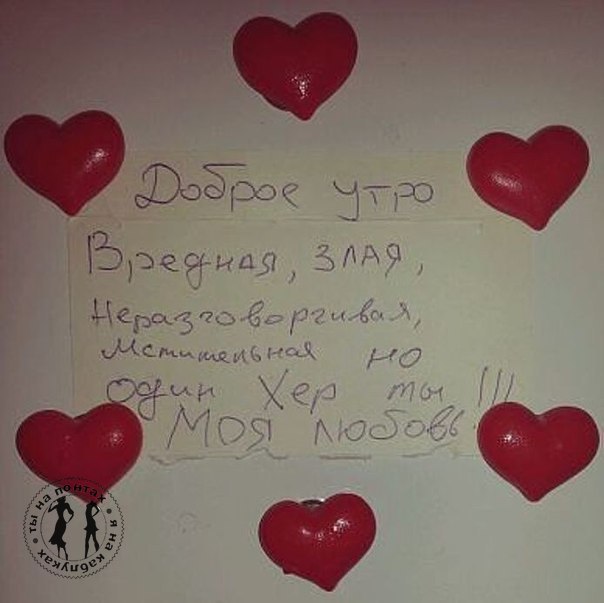 Доброе утро
Вредная, злая,
Неразговоргивая,
Мстительная но
один Хер ты !!!
Моя любовь
ты на понтах • я на каблуках •